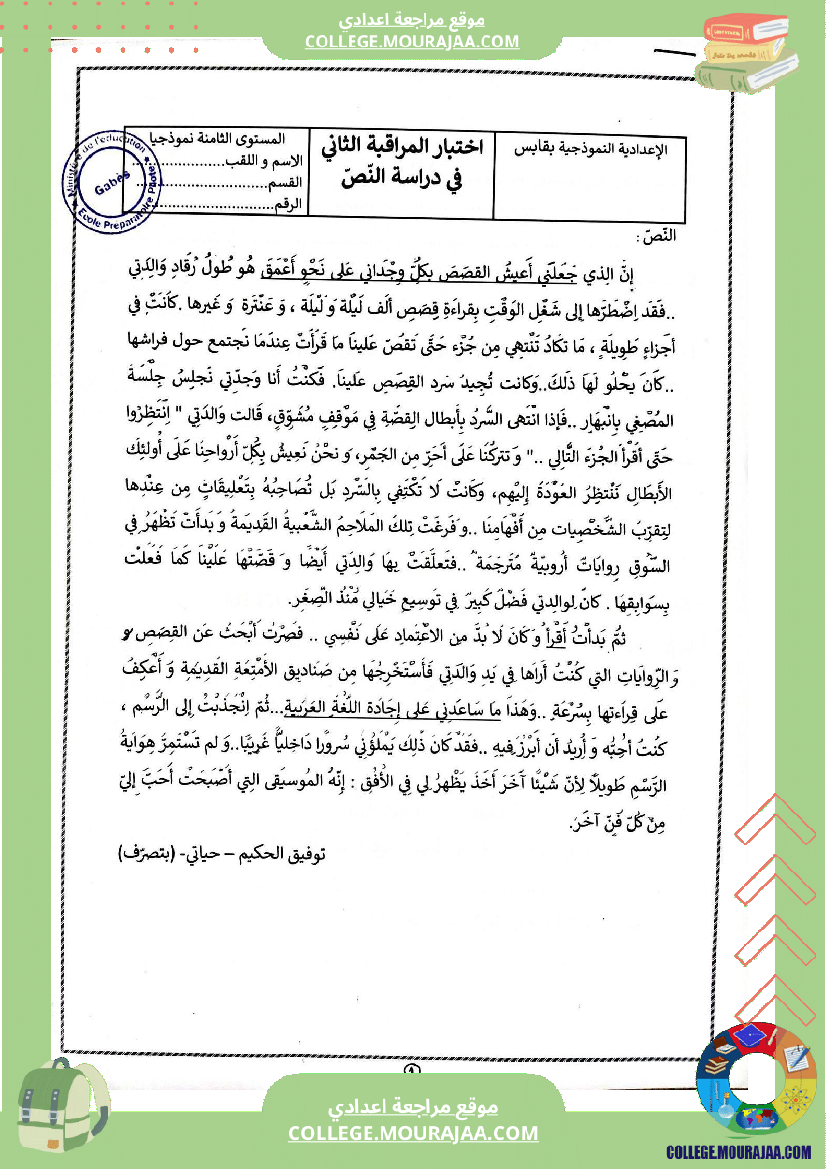 موقع مراجعة اعدادي
COLLEGE.MOURAJAA.COM
الإعدادية النموذجية بقابس
اختبار المراقبة الثاني
في دراسة النّصّ
المستوى الثامنة نموذجيا
الاسم و اللقب..................
القسم............................
الرقم............................
Ministère de l'éducation
Gabès
Ecole Préparatoire Pilote
النّصّ :
إنّ الذي جَعَلَني أَعيشُ القصَصَ بكلّ وِجْداني عَلى نَحْوٍ أَعْمَقَ هُو طُولُ رُقادِ وَالِدَتِي
..فَقَد اِضْطَرّها إلى شَغْلِ الوَقْتِ بِقراءَةِ قِصَصِ ألف لَيْلَة وَ لَيْلَة ، وَ عَنْتَرَة وَ غَيرها .كَانَتْ في
أجزاءٍ طَوِيلَةٍ ، مَا تَكادُ تَنْتَهِي مِن جُزْء حَتَّى تَقصّ عَلينَا مَا قَرَأَتْ عِندَمَا نَجتمع حول فراشها
..كَانَ يَحْلُو لَهَا ذَلكَ..وَكانت تُجِيدُ سَرد القِصَصِ عَلينَا. فَكنْتُ أنا وَجدّتِي نَجلِسُ جِلْسَةَ
المُصْغِي بِانْبهَارٍ ..فَإذا انْتَهى السَّردُ بِأبطال القِصَّةِ فِي مَوْقِفٍ مُشَوِّقٍ، قَالت وَالدَتي " اِنْتَظِرُوا
حَتّى أَقْرَأَ الجُزءَ التَّالِي .." وَ تَتركُنَا عَلَى أَحَرّ مِن الجَمْرِ، وَ نحْنُ نَعِيشُ بِكُلّ أَرْواحنَا عَلَى أُولئِكَ
الأَبطَالِ نَنْتظِرُ العَوْدَةَ إِلَيْهِم، وَكَانَتْ لَا تَكْتَفِي بِالسَّردِ بَل تُصَاحِبُهُ بِتَعْلِيقَاتٍ مِن عِنْدِها
لِتقرّبَ الشَّخْصِيات مِن أَفْهامِنَا ..وَ فَرَغَتْ تِلكَ المَلَاحِمُ الشَّعْبيةُ القَدِيمَةُ وَ بَدأَتْ تَظْهَرُ فِي
السّوقِ رِوايَاتٌ أُروبيّةٌ مُتَرجَمَةٌ ..فتَعلّقَتْ بِها وَالِدَتِي أَيْضًا وَ قَصّتْهَا عَلَيْنَا كَمَا فَعَلَتْ
بِسَوابِقِهَا . كانَ لِوالِدتي فَضْلٌ كَبِيرٌ فِي تَوسِيعِ خَيَالي مُنْذُ الصِّغَرِ.
ثمّ بَدأْتُ أَقْرأُ وَ كَانَ لَا بُدَّ مِن الاعْتِمادِ عَلى نَفْسِي .. فَصِرْتُ أَبْحَثُ عَن القِصَصِ و
وَ الرِّوايَاتِ التي كُنْتُ أَرَاها فِي يَدِ وَالدَتي فَأَسْتَخْرِجُهَا مِن صَنَاديق الأَمْتِعَةِ القَدِيمَةِ وَ أَعْكِفُ
عَلَى قِراءَتها بِسُرْعَةٍ ..وَهَذَا مَا سَاعَدنِي عَلى إِجَادَة اللّغَةِ العَرَبِيةِ...ثُمّ اِنْجَذَبْتُ إلى الرَّسْمِ ،
كُنتُ أُحِبُّه وَ أُرِيدُ أن أَبْرُزَ فِيهِ ..فَقَدْ كَان ذَلِكَ يَمْلَؤُنِي سُرورًا دَاخِليًّا غَرِيبًا..وَ لم تَسْتَمِرّ هِوَايَةُ
الرَّسْمِ طَوِيلًا لِأنّ شَيْئًا آخَرَ أخَذَ يَظْهرُ لِي فِي الأُفُقِ : إنّهُ المُوسيقَى التِي أَصْبَحَتْ أَحَبَّ إليّ
مِنْ كُلّ فَنّ آخَرَ.
توفيق الحكيم – حياتي- (بتصرّف)
موقع مراجعة اعدادي
COLLEGE.MOURAJAA.COM
COLLEGE.MOURAJAA.COM